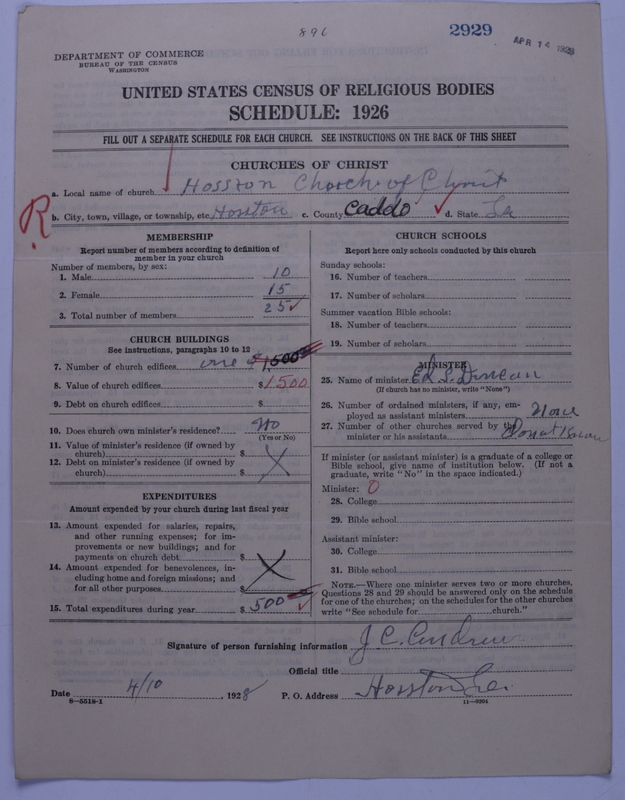 896
2929
APR 14 1928
DEPARTMENT OF COMMERCE
BUREAU OF THE CENSUS
WASHINGTON
UNITED STATES CENSUS OF RELIGIOUS BODIES
SCHEDULE: 1926
FILL OUT A SEPARATE SCHEDULE FOR EACH CHURCH. SEE INSTRUCTIONS ON THE BACK OF THIS SHEET
CHURCHES OF CHRIST
a. Local name of church Hosston Church of Christ
R
b. City, town, village, or township, etc. Hosston c. County Caddo d. State La
MEMBERSHIP
Report number of members according to definition of
member in your church
Number of members, by sex:
1. Male 10
2. Female 15
3. Total number of members 25
CHURCH BUILDINGS
See instructions, paragraphs 10 to 12
7. Number of church edifices one $1,500
8. Value of church edifices $ 1500
9. Debt on church edifices $
10. Does church own minister's residence? No
(Yes or No)
11. Value of minister's residence (if owned by
church) $
12. Debt on minister's residence (if owned by
church) $ X
EXPENDITURES
Amount expended by your church during last fiscal year
13. Amount expended for salaries, repairs,
and other running expenses; for im-
provements or new buildings; and for
payments on church debt $
14. Amount expended for benevolences, in-
cluding home and foreign missions; and
for all other purposes $ X
15. Total expenditures during year $ 500
CHURCH SCHOOLS
Report here only schools conducted by this church
Sunday schools:
16. Number of teachers
17. Number of scholars
Summer vacation Bible schools:
18. Number of teachers
19. Number of scholars
MINISTER
25. Name of minister Ed. S. Duncan
(If church has no minister, write "None")
26. Number of ordained ministers, if any, em-
ployed as assistant ministers None
27. Number of other churches served by the
minister or his assistants Do not Know
If minister (or assistant minister) is a graduate of a college or
Bible school, give name of institution below. (If not a
graduate, write "No" in the space indicated.)
Minister: 0
28. College
29. Bible school
Assistant minister:
30. College
31. Bible school
NOTE.—Where one minister serves two or more churches,
Questions 28 and 29 should be answered only on the schedule
for one of the churches; on the schedules for the other churches
write "See schedule for church."
Signature of person furnishing information J. C.
Official title
Date 4/10, 1928 P. O. Address Hosston La.
8—5518-1
11—9204